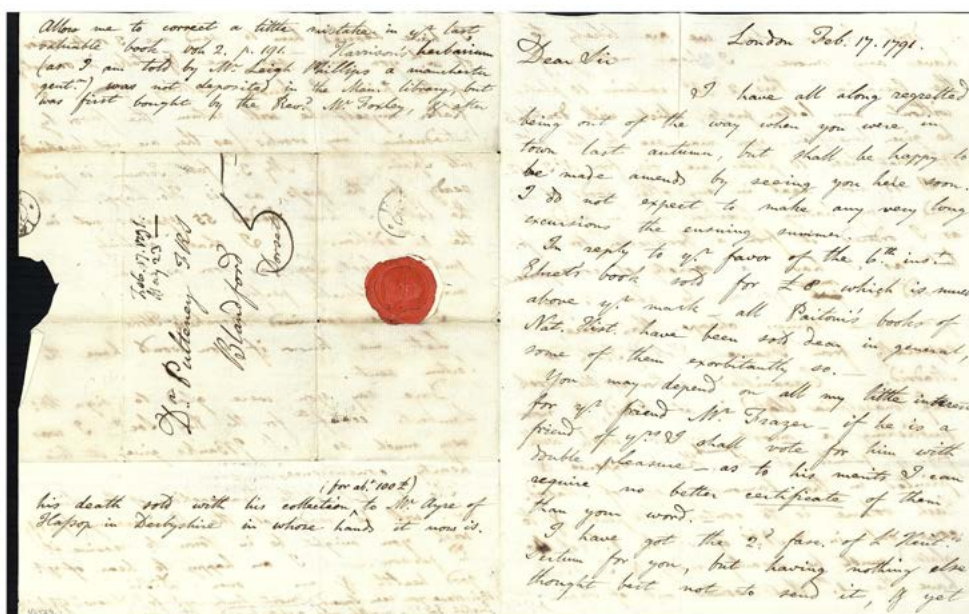 Allow me to correct a little mistake in yr. last
valuable book vol. 2. p. 191. Harrison's herbarium
(as I am told by Mr. Leigh Phillips a manchester
gentn.) was not deposited in the Manr. library, but
was first bought by the Revd. Mr. Foxley, & after
Feb. 17. 1791.
23
Dr. Pulteney FRS
Blandford
Dorset
5
(for abt. 100£)
his death sold with his collection to Mr. Ayre of
Hassop in Derbyshire in whose hands it now is.
London Feb. 17. 1791.
Dear Sir
I have all along regretted
being out of the way when you were in
town last autumn, but shall be happy to
be made amends by seeing you here soon.
I do not expect to make any very long
excursions the ensuing summer.
In reply to yr. favor of the 6th. inst.
Ehret's book sold for £8 which is much
above yr. mark – all Paitoni's books of
Nat. Hist. have been sold dear in general,
some of them exorbitantly so. –
You may depend on all my little interest
for yr. friend Mr. Frazer – if he is a
friend of yrs. I shall vote for him with
double pleasure – as to his merits I can
require no better certificate of them
than your word.
I have got the 2d. fasc. of
Sertum for you, but having nothing else
thought best not to send it, if yet